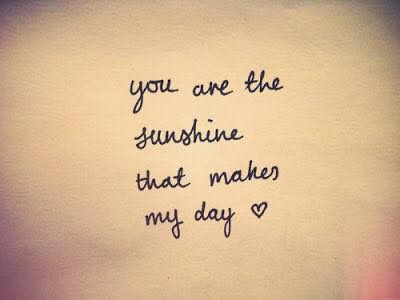 you are the
sunshine
that makes
my day ♡